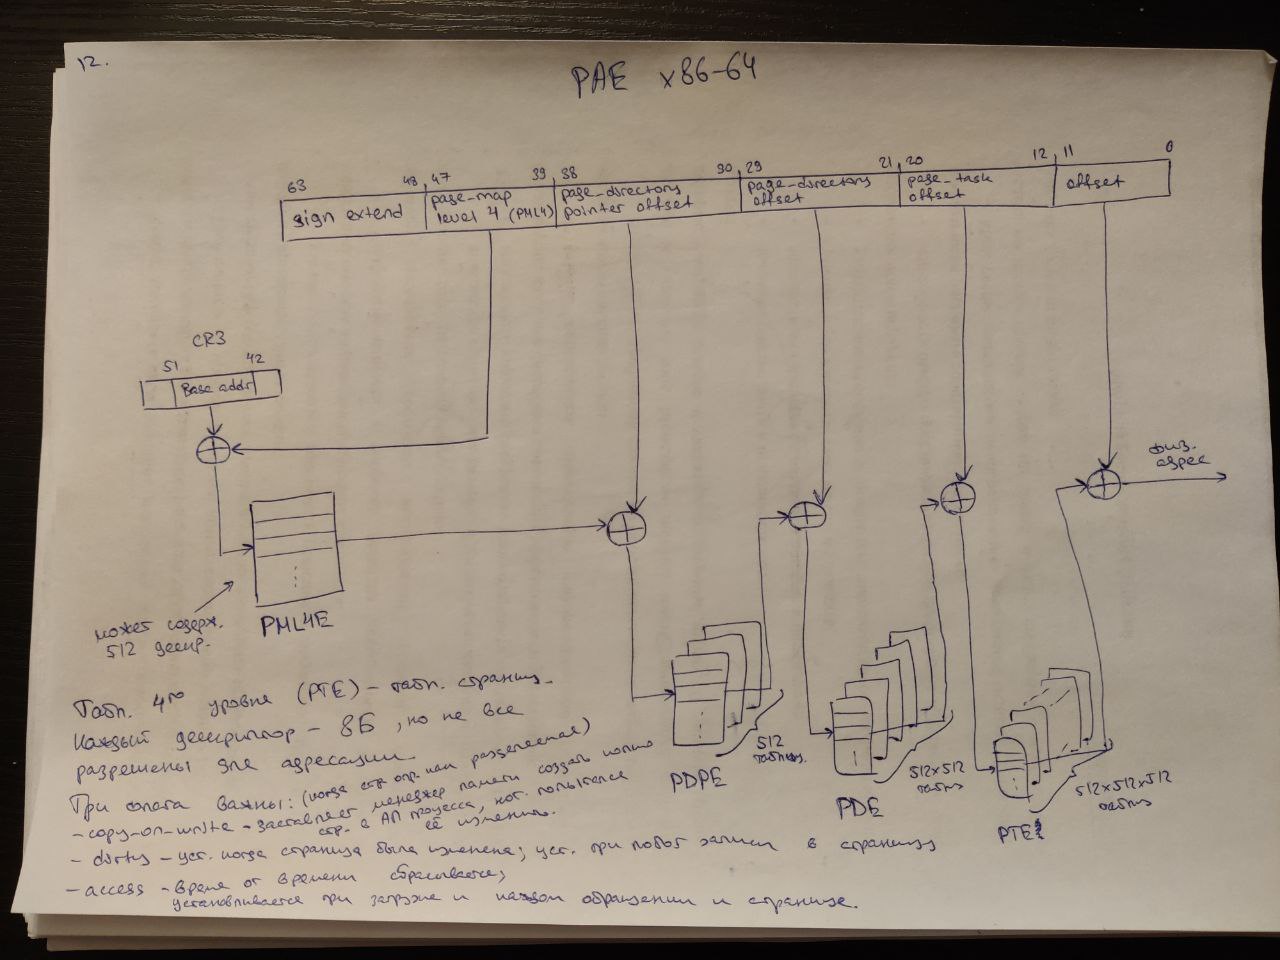 12.
PAE x86-64
63 48 47 39 38 30 29 21 20 12 11 0
sign extend
page-map
level 4 (PML4)
page-directory
pointer offset
page-directory
offset
page-task
offset
offset
CR3
51 42
Base addr
физ.
адрес
может содерж.
512 дескр.
PML4E
PDPE
512
таблиц.
PDE
512x512
табл.
PTE
512x512x512
табл.
Табл. 4го уровня (PTE) - табл. страниц.
Каждый дескриптор - 8Б, но не все
разрешены для адресации.
Три флага важны: (когда стр. опр. как разделяемая)
- copy-on-write - заставляет менеджер памяти создать копию
стр. в АП процесса, кот. попытался
её изменить.
- dirty - уст. когда страница была изменена; уст. при любой записи в страницу
- access - время от времени сбрасывается;
устанавливается при загрузке и каждом обращении к странице.